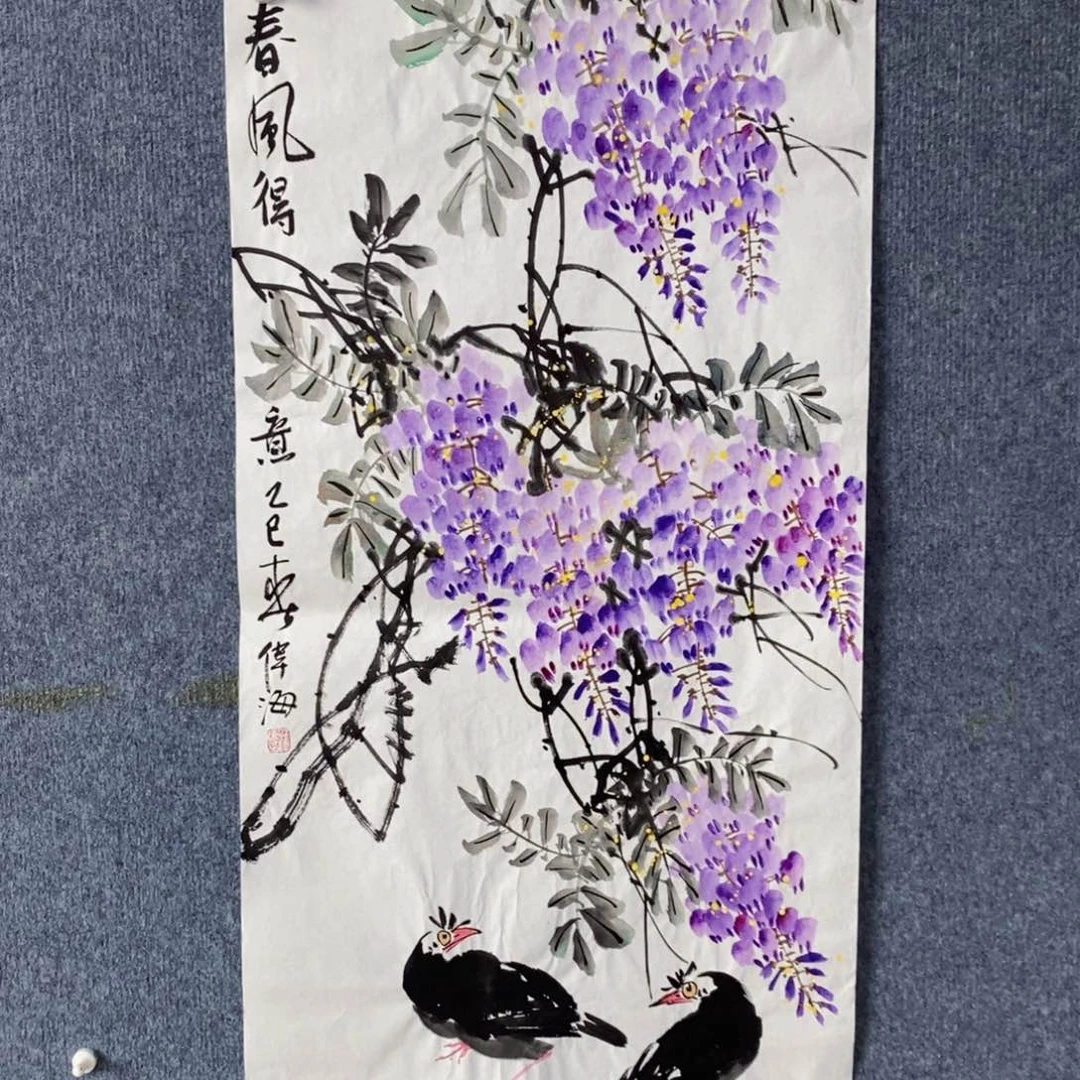 春風得意乙巳春偉海